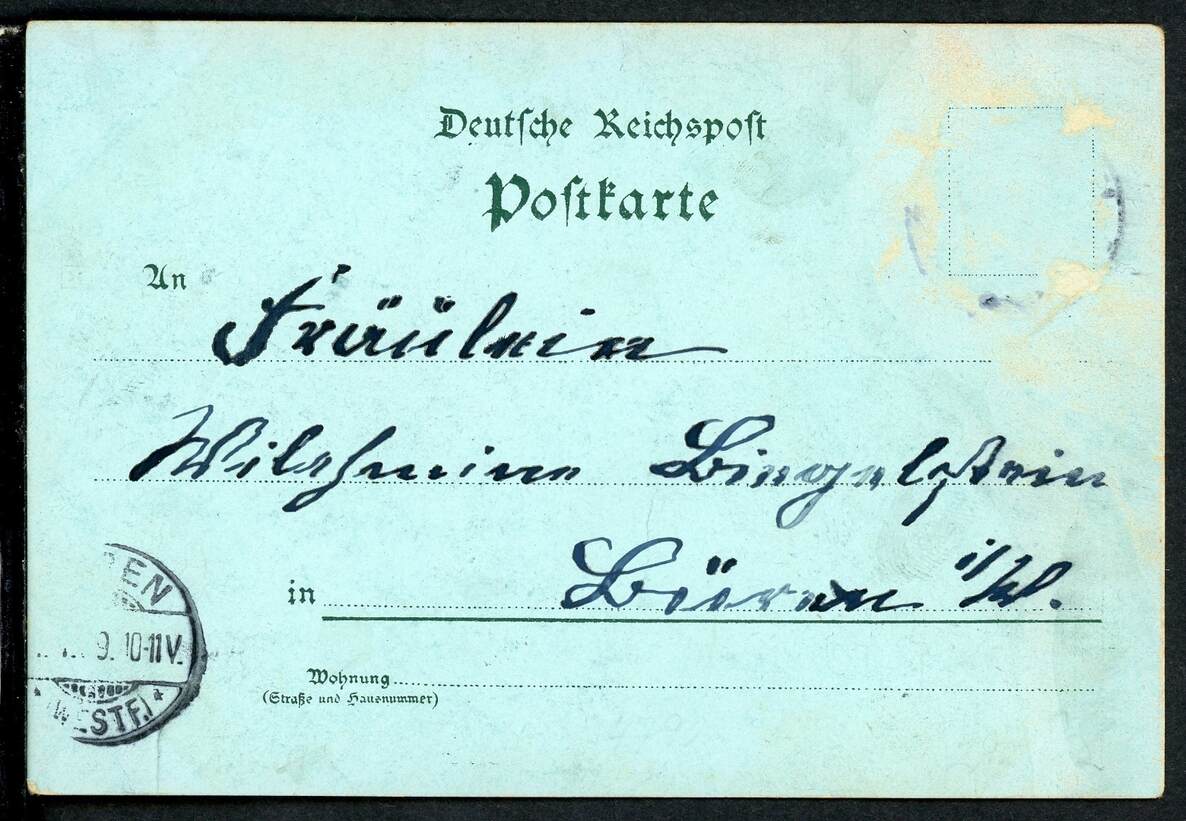 Deutsche Reichspost
Postkarte
An
Fräulein
Wilhelmine Bingelstein
in Büren i/W.
Wohnung
(Straße und Hausnummer)
REN
9. 10-11V.
(WESTF.)